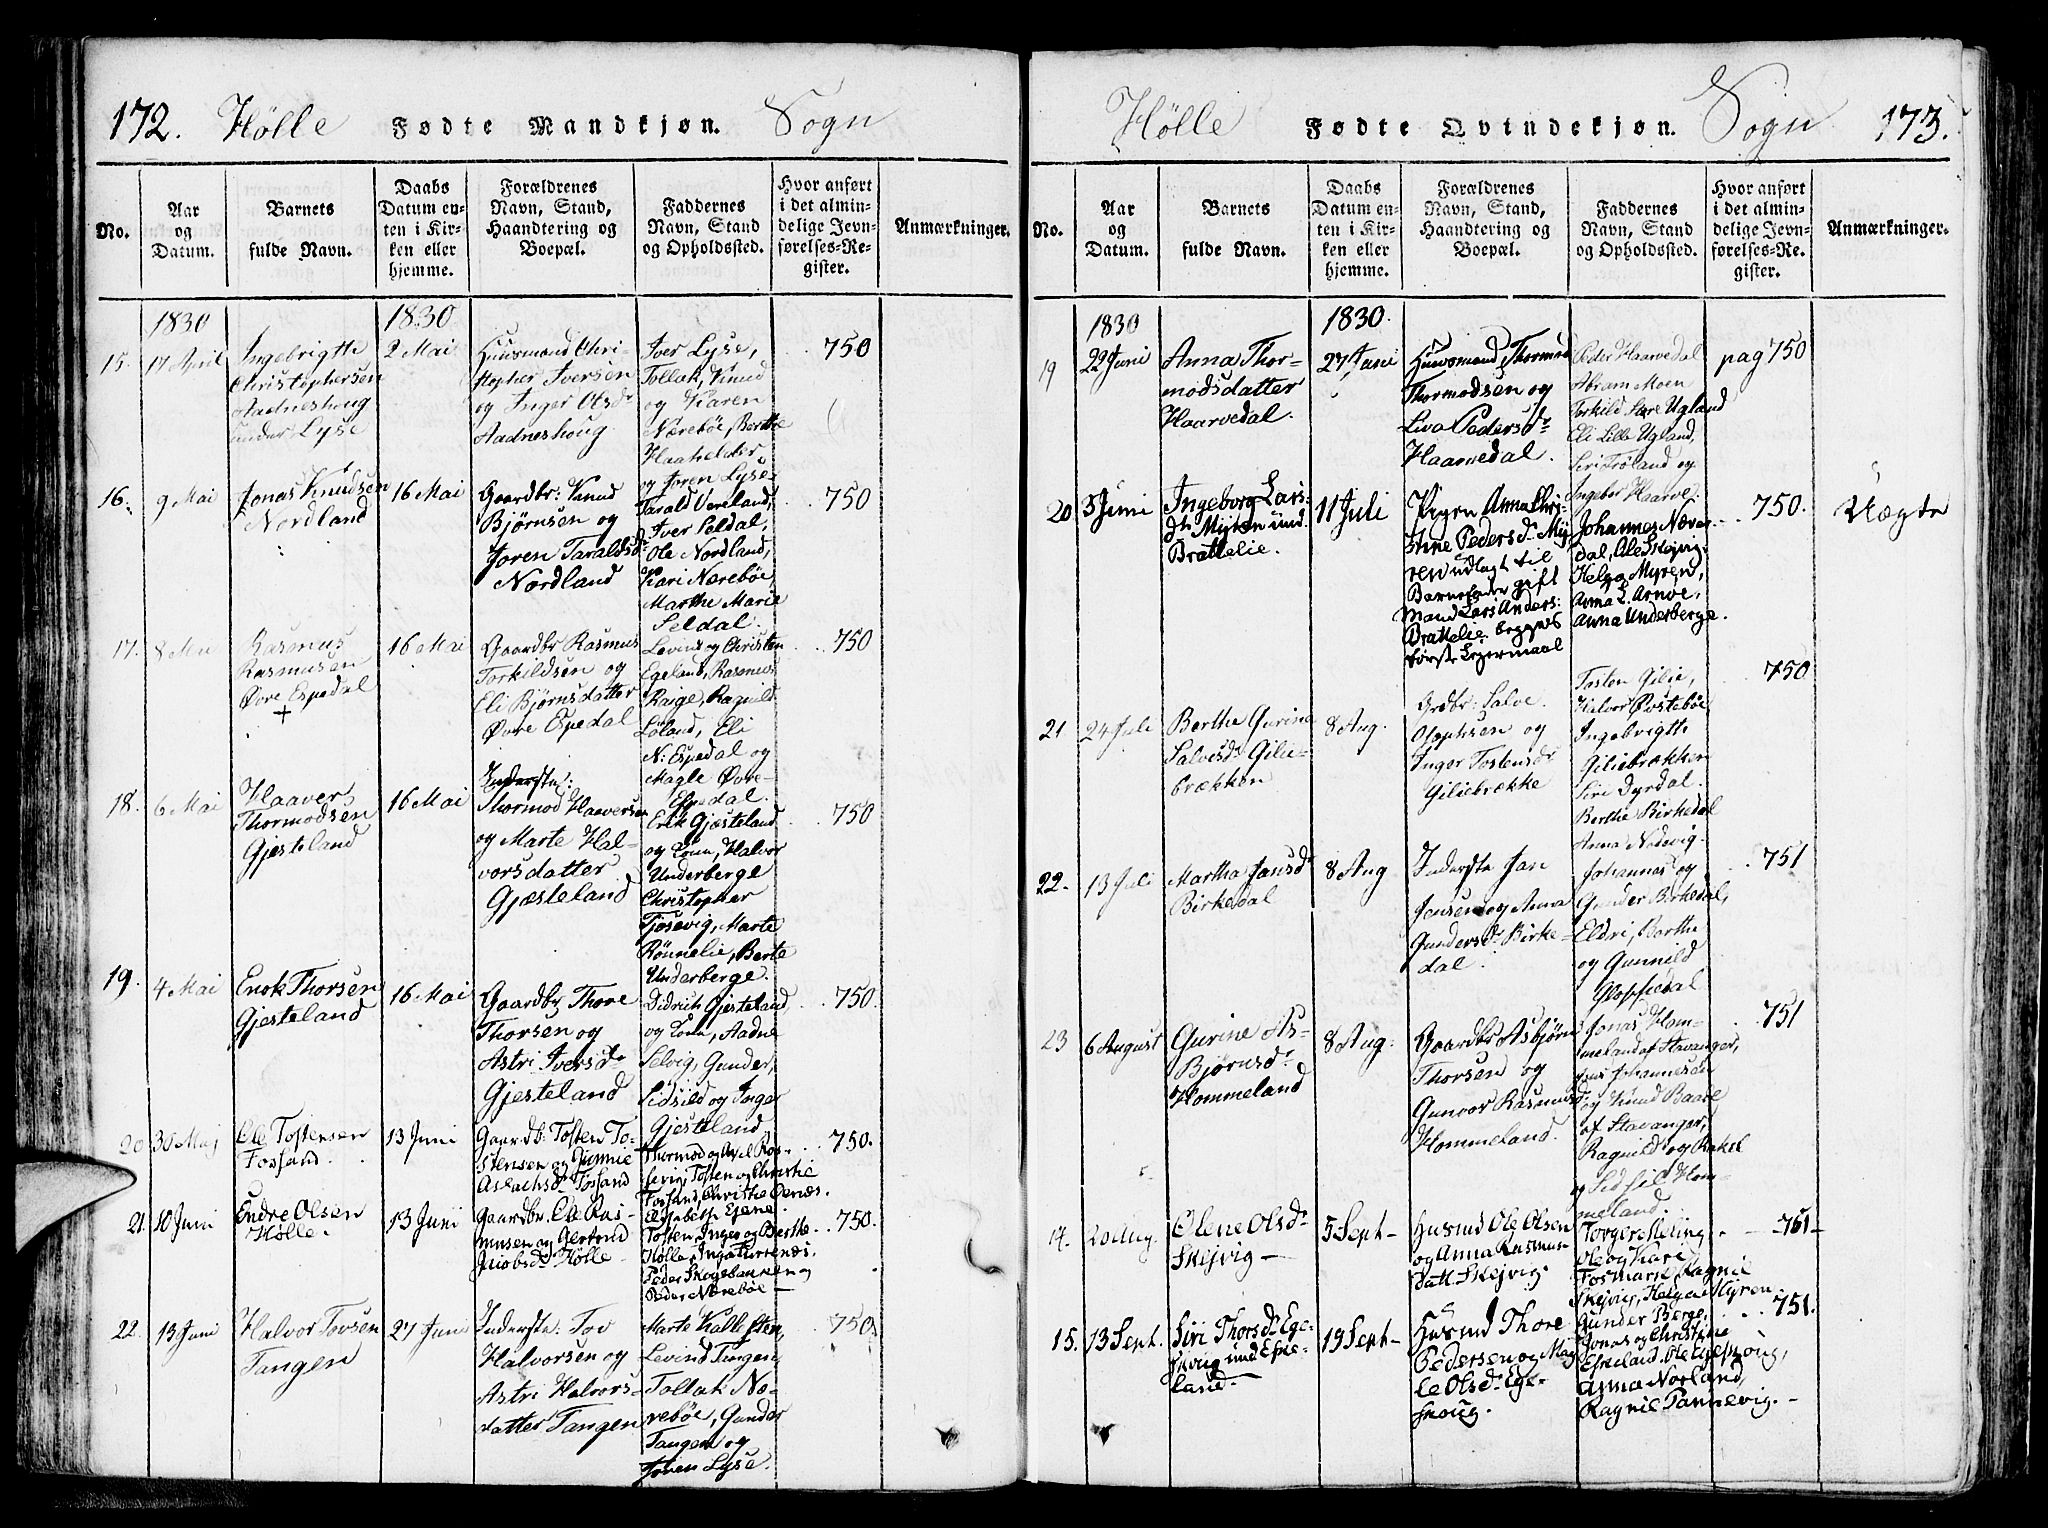 172. Hölle Fødte Mandkjøn. Sogn
No.
Aar
og
Datum.
Barnets
fulde Navn.
Daabs
Datum en-
ten i Kir-
ken eller
hjemme.
Forældrenes
Navn, Stand,
Haandtering og
Boepæl.
Faddernes
Navn, Stand
og Opholdssted.
Hvor anført
i det almin-
delige Jevn-
førelses-Re-
gister.
Anmærkninger.
1830
1830
15.
17 April
Ingebrigth
Christophersen
Aadneshoug
under Lyse
2 Mai
Huusmand Chri-
stopher Iversen
og Inger Olsdr
Aadneshoug
Iver Lyse,
Tollak, Knud
og Karen
Nærebøe, Berthe
Haahelder
og Joren Lyse
750
16.
9 Mai
Jonas Knudsen
Nordland
16 Mai
Gaardbr: Knud
Bjørnsen og
Joren Taraldsdr
Nordland
Tarald Vereland,
Iver Seldal,
Ole Nordland,
Kari Nærebøe,
Marthe Marie
Seldal.
750
17.
8 Mai
Rasmus
Rasmusen
Øvre Espedal
+
16 Mai
Gaardbr Rasmus
Torkildsen og
Eli Bjørnsdatter
Øvre Espedal
Levind og Christen
Egeland, Rasmus
Raige, Ragnild
Löland, Eli
N: Espedal og
Magle Øvre-
Espedal.
750
18.
6 Mai
Haaver
Thormodsen
Gjesteland
16 Mai
Inderste:
Thormod Haaversen
og Marte Hal-
vorsdatter
Gjæsteland
Erik Gjæsteland
og Kone, Halvor
Underberge
Christopher
Tjosevig, Marte
Rönnelie, Berte
Underberge.
750
19.
4 Mai
Enok Thorsen
Gjesteland
16 Mai
Gaardbr Thore
Thorsen og
Astri Iversdr
Gjesteland
Didrich Gjesteland,
og Kone, Aadne
Selvig, Gunder,
Sidsild og Inger
Gjesteland
750
20
30 Maj
Ole Tostensen
Fossand.
13 Juni
Gaardb: Tosten To-
stensen og Gunnie
Aslachsdr Fossand
Thormod og Axel Ros-
sevig, Tosten og Christie
Fossand, Christie Oenæs.
Elisabeth Ejene.
750.
21.
10 Juni
Endre Olsen
Hölle.
13 Junii
Gaardbr. Ole Ras-
musen og Gertrud
Jacobsdr Hölle
Tosten Inger og Berthe
Hölle, Inga
Peder Skogebakken og
Peder Nærebøe
750.
22.
13 Juni
Halvor Tovsen
Tangen
27 Juni
Inderste: Tov
Halvorsen og
Astri Halvors-
datter Tangen
Marte Kallesten,
Levind Tangen,
Tollak Næ-
rebøe, Gunder
Tangen og
Joren Lyse.
750.
Hölle Fødte Qvindekjøn. Sogn 173.
No.
Aar
og
Datum.
Barnets
fulde Navn.
Daabs
Datum en-
ten i Kir-
ken eller
hjemme.
Forældrenes
Navn, Stand,
Haandtering og
Boepæl.
Faddernes
Navn, Stand
og Opholdssted.
Hvor anført
i det almin-
delige Jevn-
førelses-Re-
gister.
Anmærkninger.
1830
1830.
19
22 Juni
Anna Thor-
modsdatter
Haarvedal.
27 Juni
Huusmand Thormod
Thormodsen og
Liva Pedersdr
Haarvedal.
Peder Haarvedal
Abram Moen
Torkild Støre Ugland
Eli Lille Ugland,
Siri Tröland og
Ingebor Haarve.
pag 750
20
3 Juni
Ingeborg Lars-
dr Myren und.
Brattelie.
11 Juli
Pigen Anna Chri-
stine Pedersdr My-
ren udlagt til
Barnefader gift
Mand Lars Anders:
Brattelie. begges
første Lejermaal
Johannes Næver-
dal, Ole Skejvig,
Helga Myren,
Anna L. Arnøe,
Anna Underberge.
750.
Uægte
21
24 Juli
Berthe Gurina
Salvesdr Gilie-
brækken
8 Aug.
Grdbr: Salve
Osophsen og
Inger Tostensdr
Giliebrække
Tosten Gilje,
Halvor Østebøe
Ingebrigth
Giliebrækken
Siri Dyrdal.
Berthe Birkedal
Anna Nodevig
750
22.
13 Juli
Martha Jansdr
Birkedal
8 Aug
Inderste Jan
Jensen og Anna
Gundersdr Birke-
dal.
Johannas og
Gunder Birkedal,
Eldri, Berthe
og Gunnild
Gloppedal
751
23
6 August
Gurine As-
Bjørnsdr
Hommeland
8 Aug:
Gaardbr Asbjørn
Thorsen og
Gunvor Rasmusdr
Hommeland.
Jonas Hom-
meland af Stavanger,
Jens Johannesen
og Knud Baade
af Stavanger,
Ragnild og Rakel
og Sidsil Hom-
meland.
751
14.
20 Aug.
Olene Olsdr
Skejvig
5 Sept
Husmd Ole Olsen
og Anna Rasmus-
datt. Skejvig.
Torger Meling
Ole og Kari
Fosmark, Ragnil
Skejvig, Helga Myren
751
15.
13 Sept.
Siri Thorsdr Ege-
skoug und Eske-
land.
19 Sept
Husmd Thore
Pedersen og Mag-
le Olsdr Ege-
skoug.
Gunder Berge,
Jonas og Christine
Eskeland. Ole Egeskoug,
Anna Norland,
Ragnil Tannevig.
751.